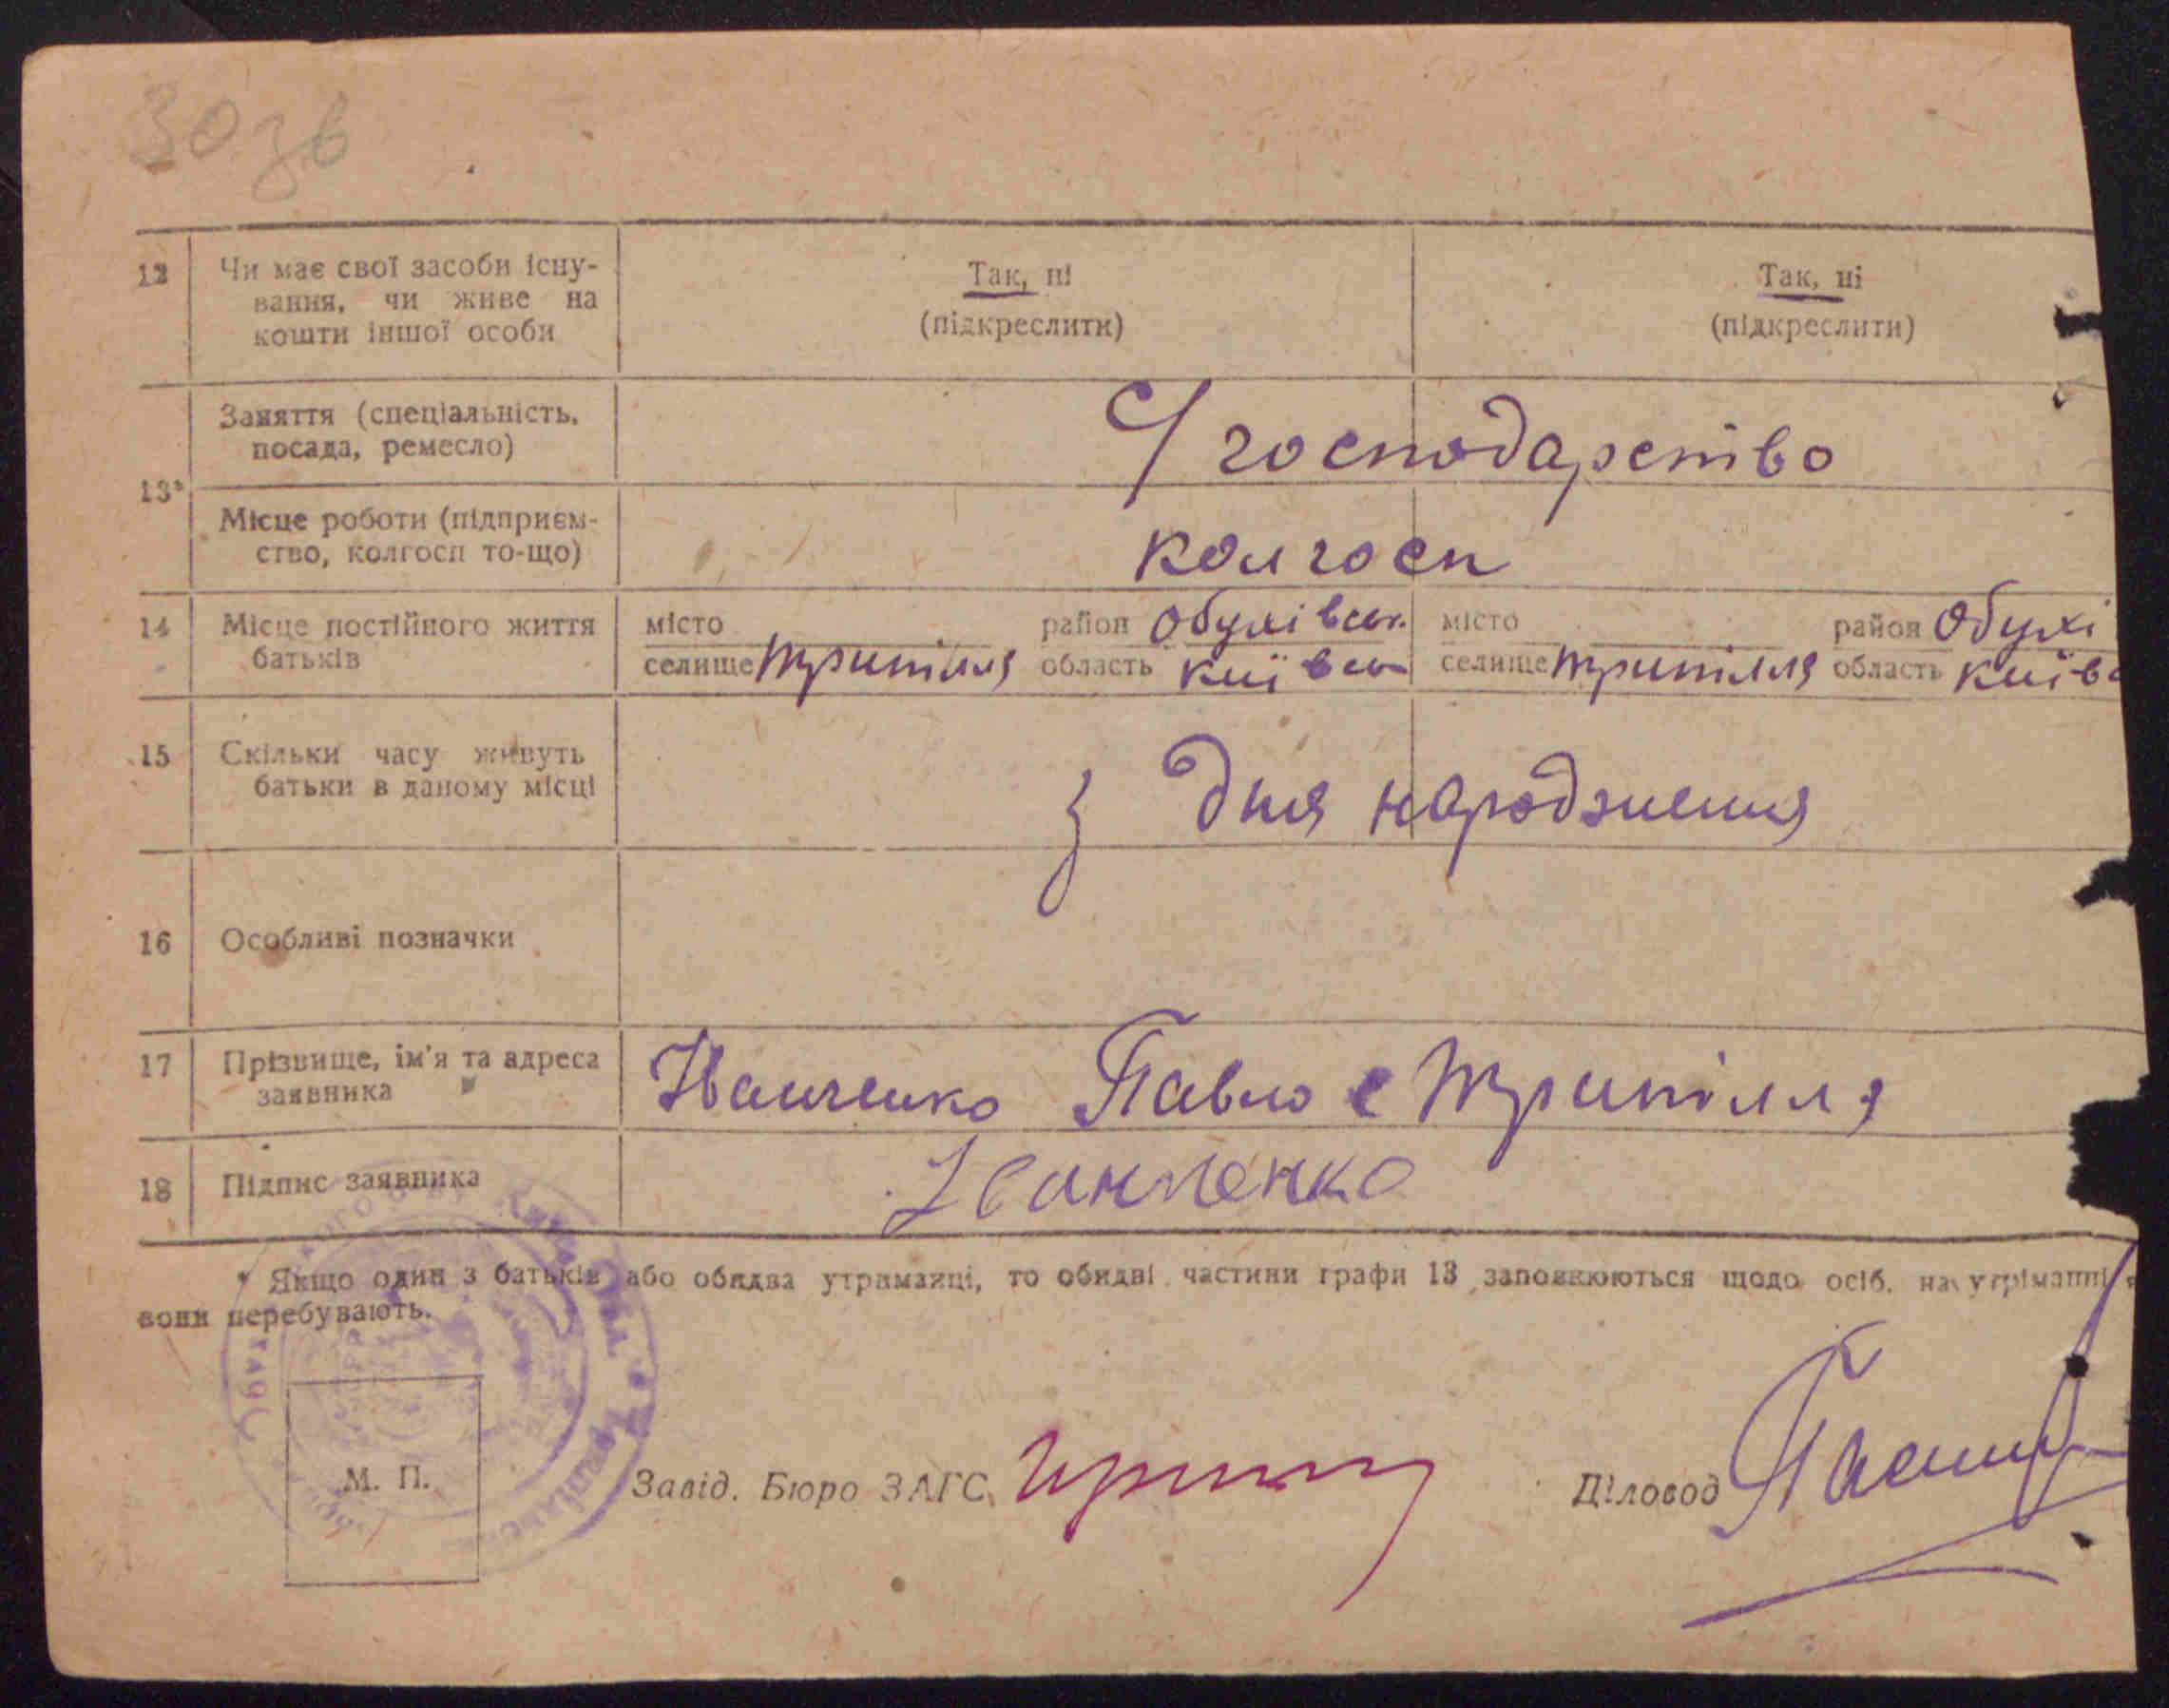 30 зв
12 Чи має свої засоби існу-
вання, чи живе на
кошти іншої особи
Так, ні
(підкреслити)
Так, ні
(підкреслити)
13*
Заняття (спеціальність,
посада, ремесло)
С/господарство
Місце роботи (підприєм-
ство, колгосп то-що)
колгосп
14 Місце постійного життя
батьків
місто район Обухівськ.
селище Трипілля область Київськ
місто район Обухі
селище Трипілля область Київс
15 Скільки часу живуть
батьки в даному місці
З дня народження
16 Особливі позначки
17 Прізвище, ім'я та адреса
заявника
Іванченко Павло с Трипілля
18 Підпис заявника
Іванченко
* Якщо один з батьків або обидва утриманці, то обидві частини графи 13 заповнюються щодо осіб, на утриманні
вони перебувають.
М. П.
Завід. Бюро ЗАГС
Діловод